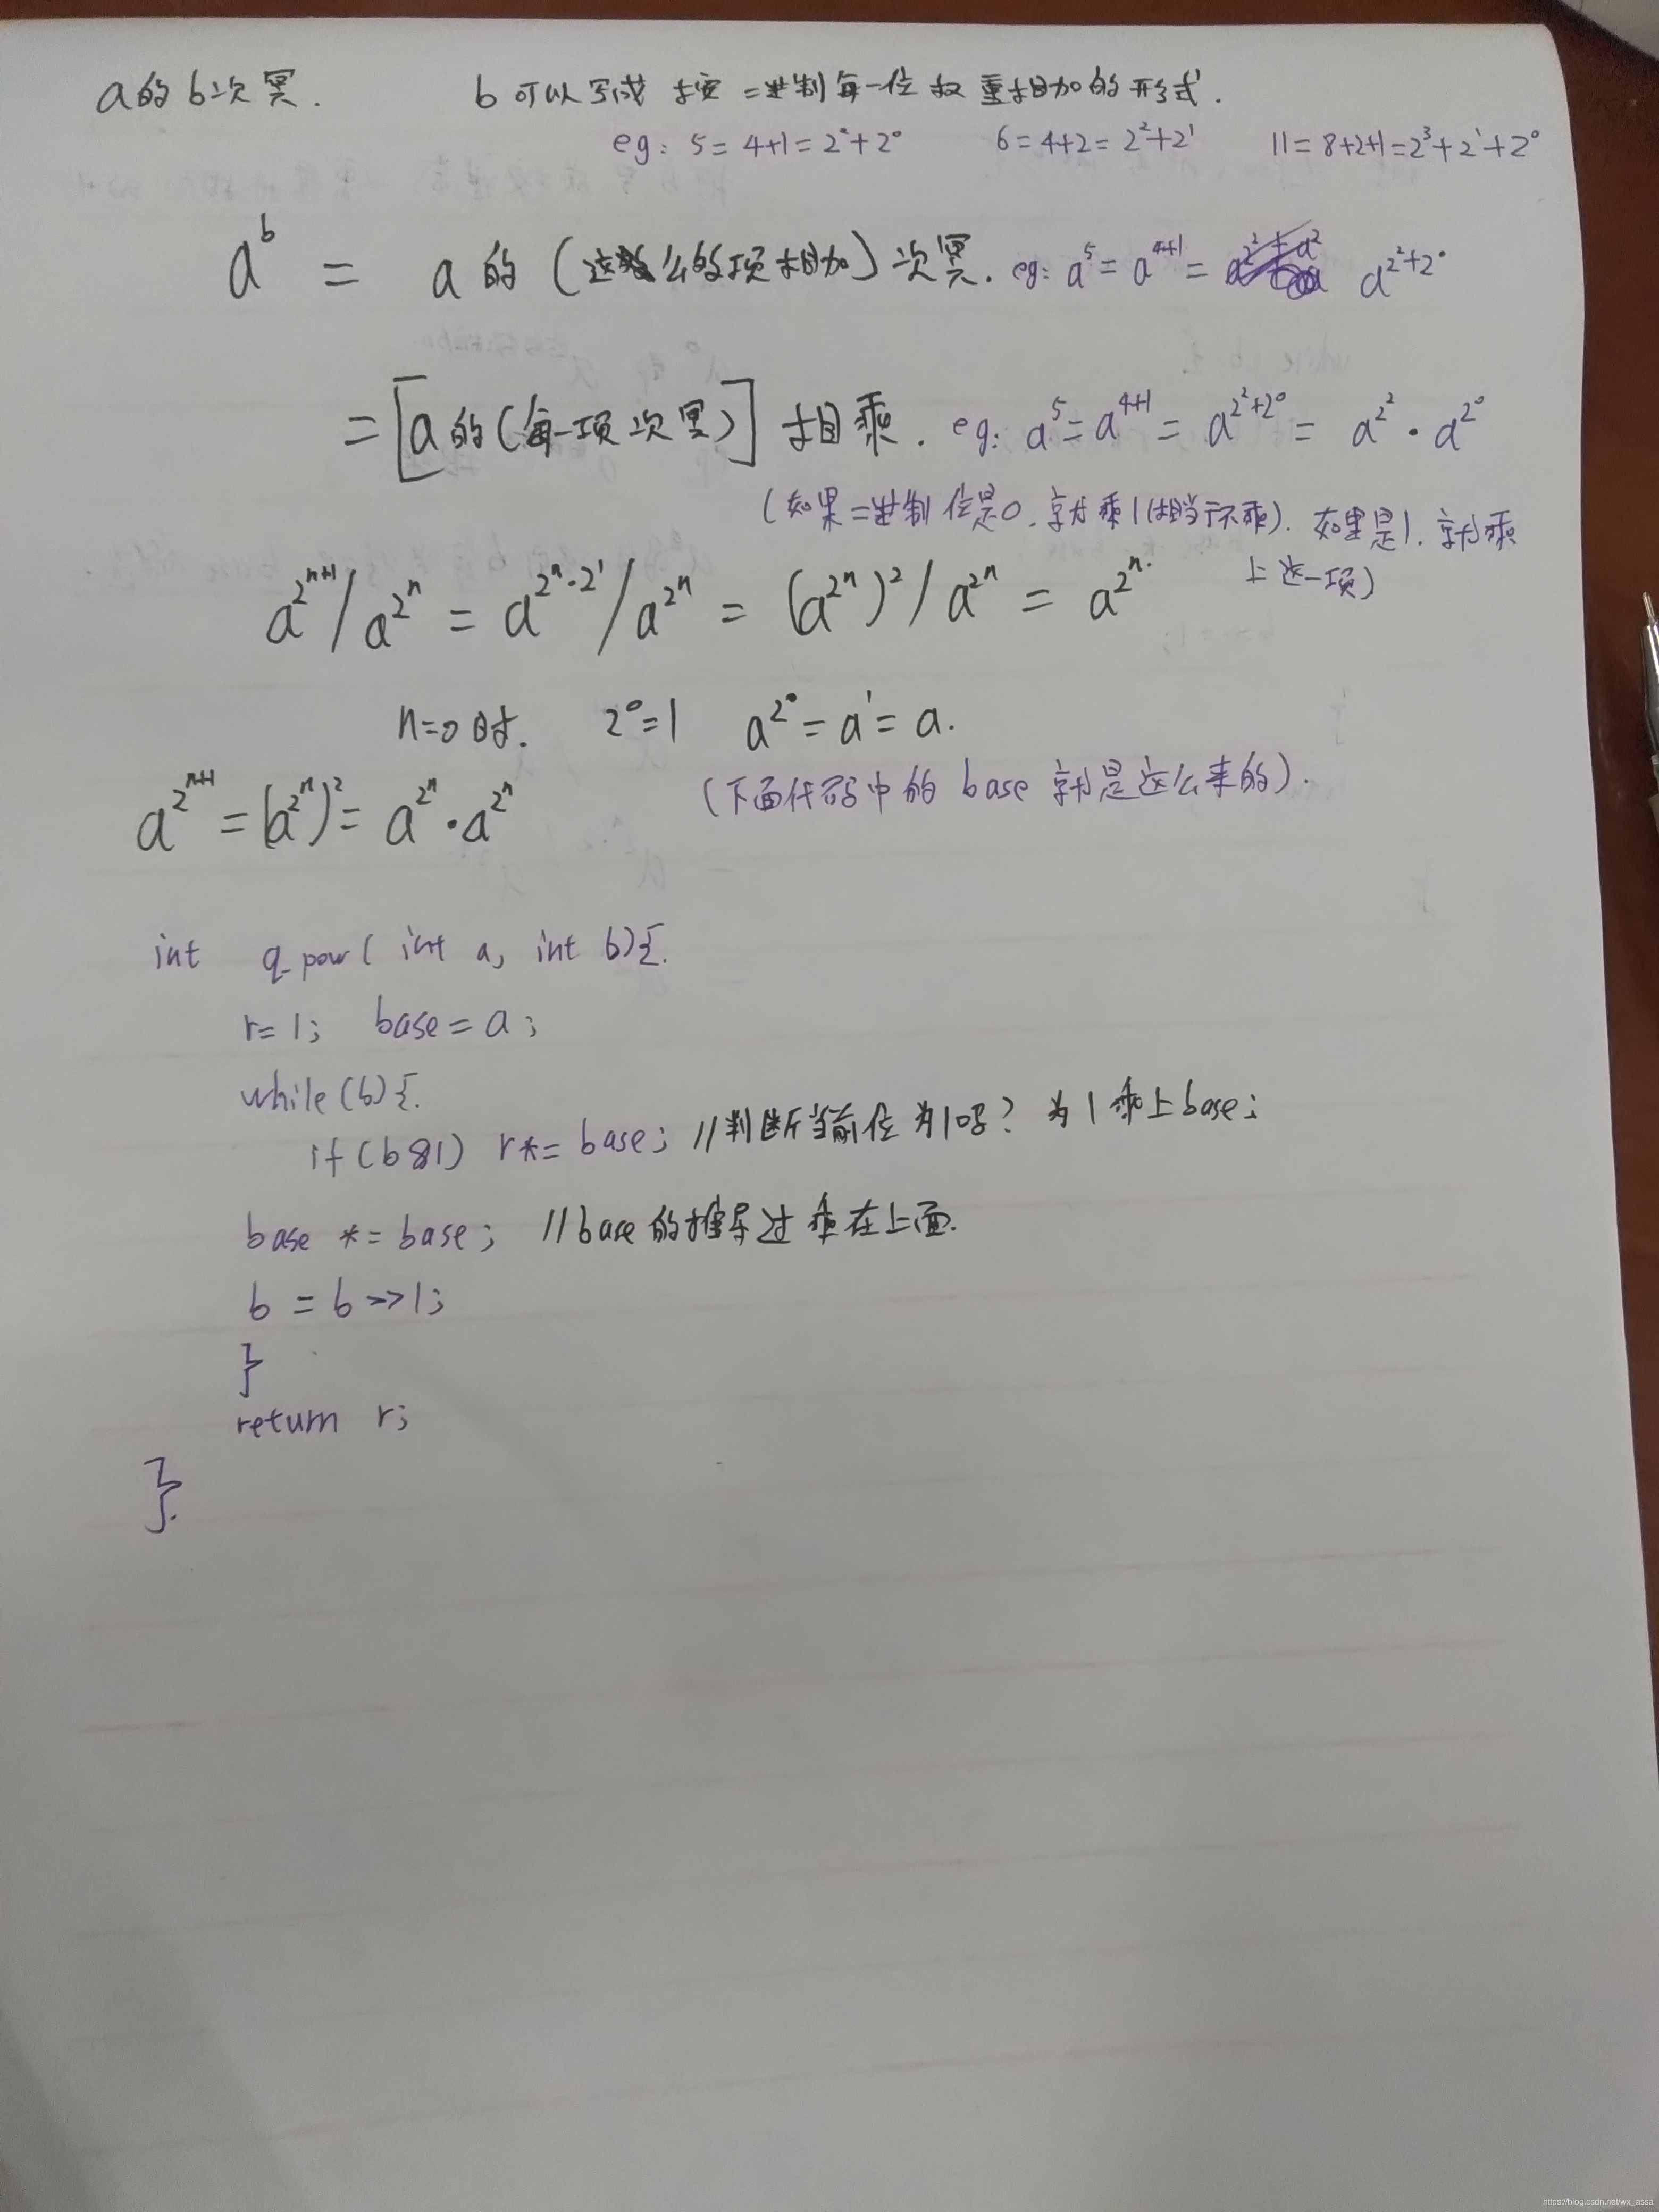 a的b次幂. b可以写成 按二进制每一位权重相加的形式.
eg: 5=4+1=2²+2⁰ 6=4+2=2²+2¹ 11=8+2+1=2³+2¹+2⁰
a^b = a的(这么的项相加)次幂. eg: a^5 = a^(4+1) = a^(2²+2⁰)
=[a的(每一项次幂)] 相乘. eg: a^5 = a^(4+1) = a^(2²+2⁰) = a^(2²) · a^(2⁰)
(如果二进制位是0, 就乘1(相当于不乘). 如果是1, 就乘
上这一项)
a^(2^(n+1)) / a^(2^n) = a^(2^n·2¹) / a^(2^n) = (a^(2^n))² / a^(2^n) = a^(2^n).
n=0时. 2⁰=1 a^(2⁰) = a¹ = a.
(下面代码中的 base 就是这么来的).
a^(2^(n+1)) = (a^(2^n))² = a^(2^n) · a^(2^n)
int q_pow( int a, int b){.
r=1; base=a;
while(b){.
if(b&1) r*= base; //判断当前位为1吗? 为1乘上base;
base *= base; //base的推导过乘在上面.
b = b>>1;
}
return r;
}.
https://blog.csdn.net/wx_assa